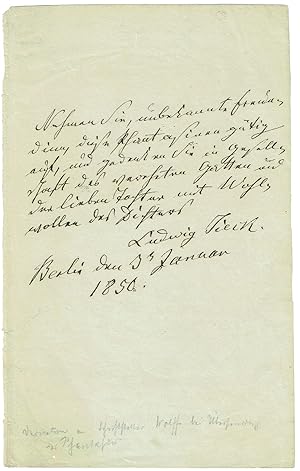 Nehmen Sie, unbekannte Freun-
dinn, diese Phantasieen gütig
auf, und gedenken Sie in Gesell-
schaft des verehrten Gatten und
der lieben Tochter mit Wohl-
wollen des Dichters
Ludwig Tieck.
Berlin den 3t Januar
1850.